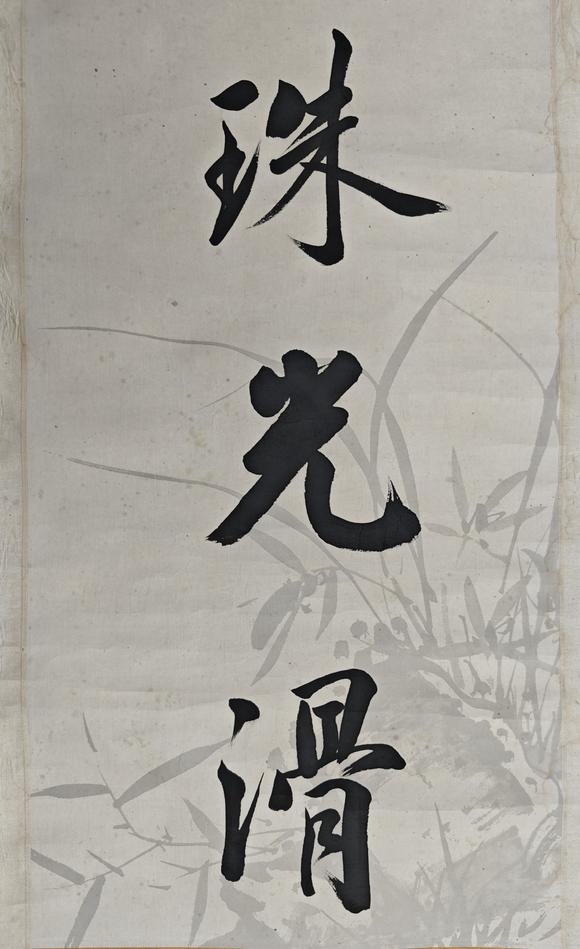 珠光滑